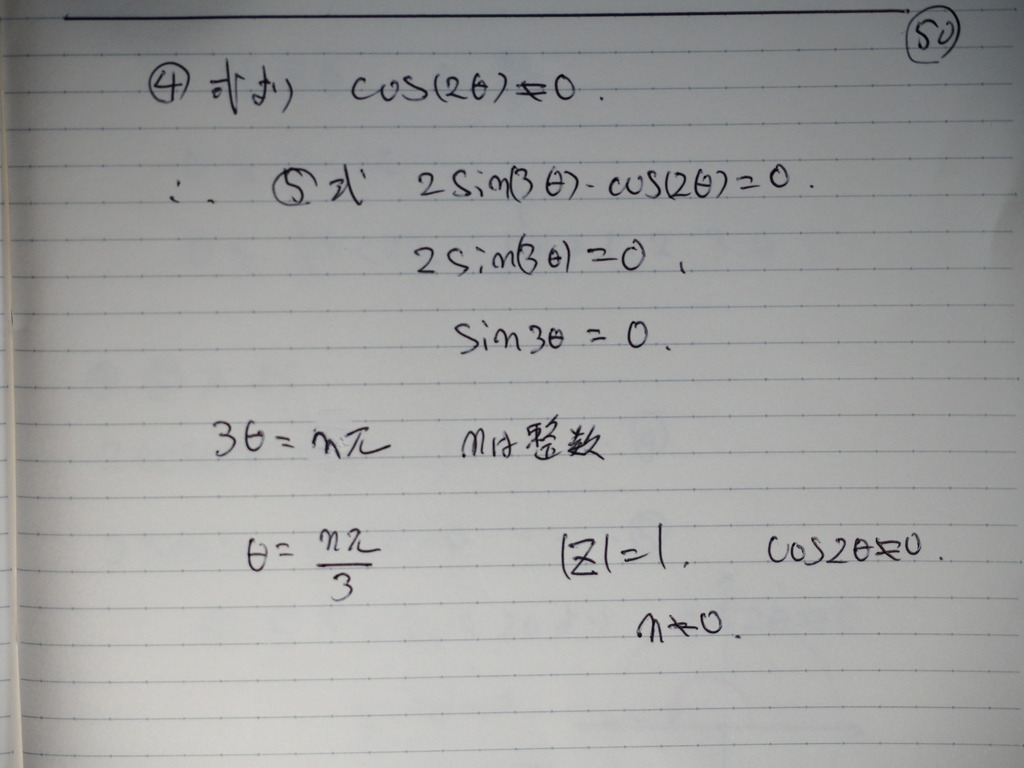 ㊿
④式より cos(2θ)≠0.
∴ ⑤式 2sin(3θ)・cos(2θ)=0.
2sin(3θ)=0,
sin3θ=0.
3θ=nπ nは整数
θ=nπ/3 |Z|=1. cos2θ≠0.
n≠0.